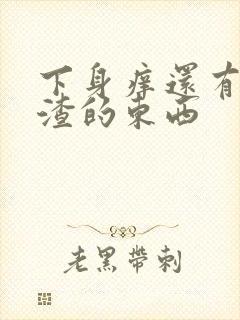 下身痒還有
渣的東西
老黑帶刺